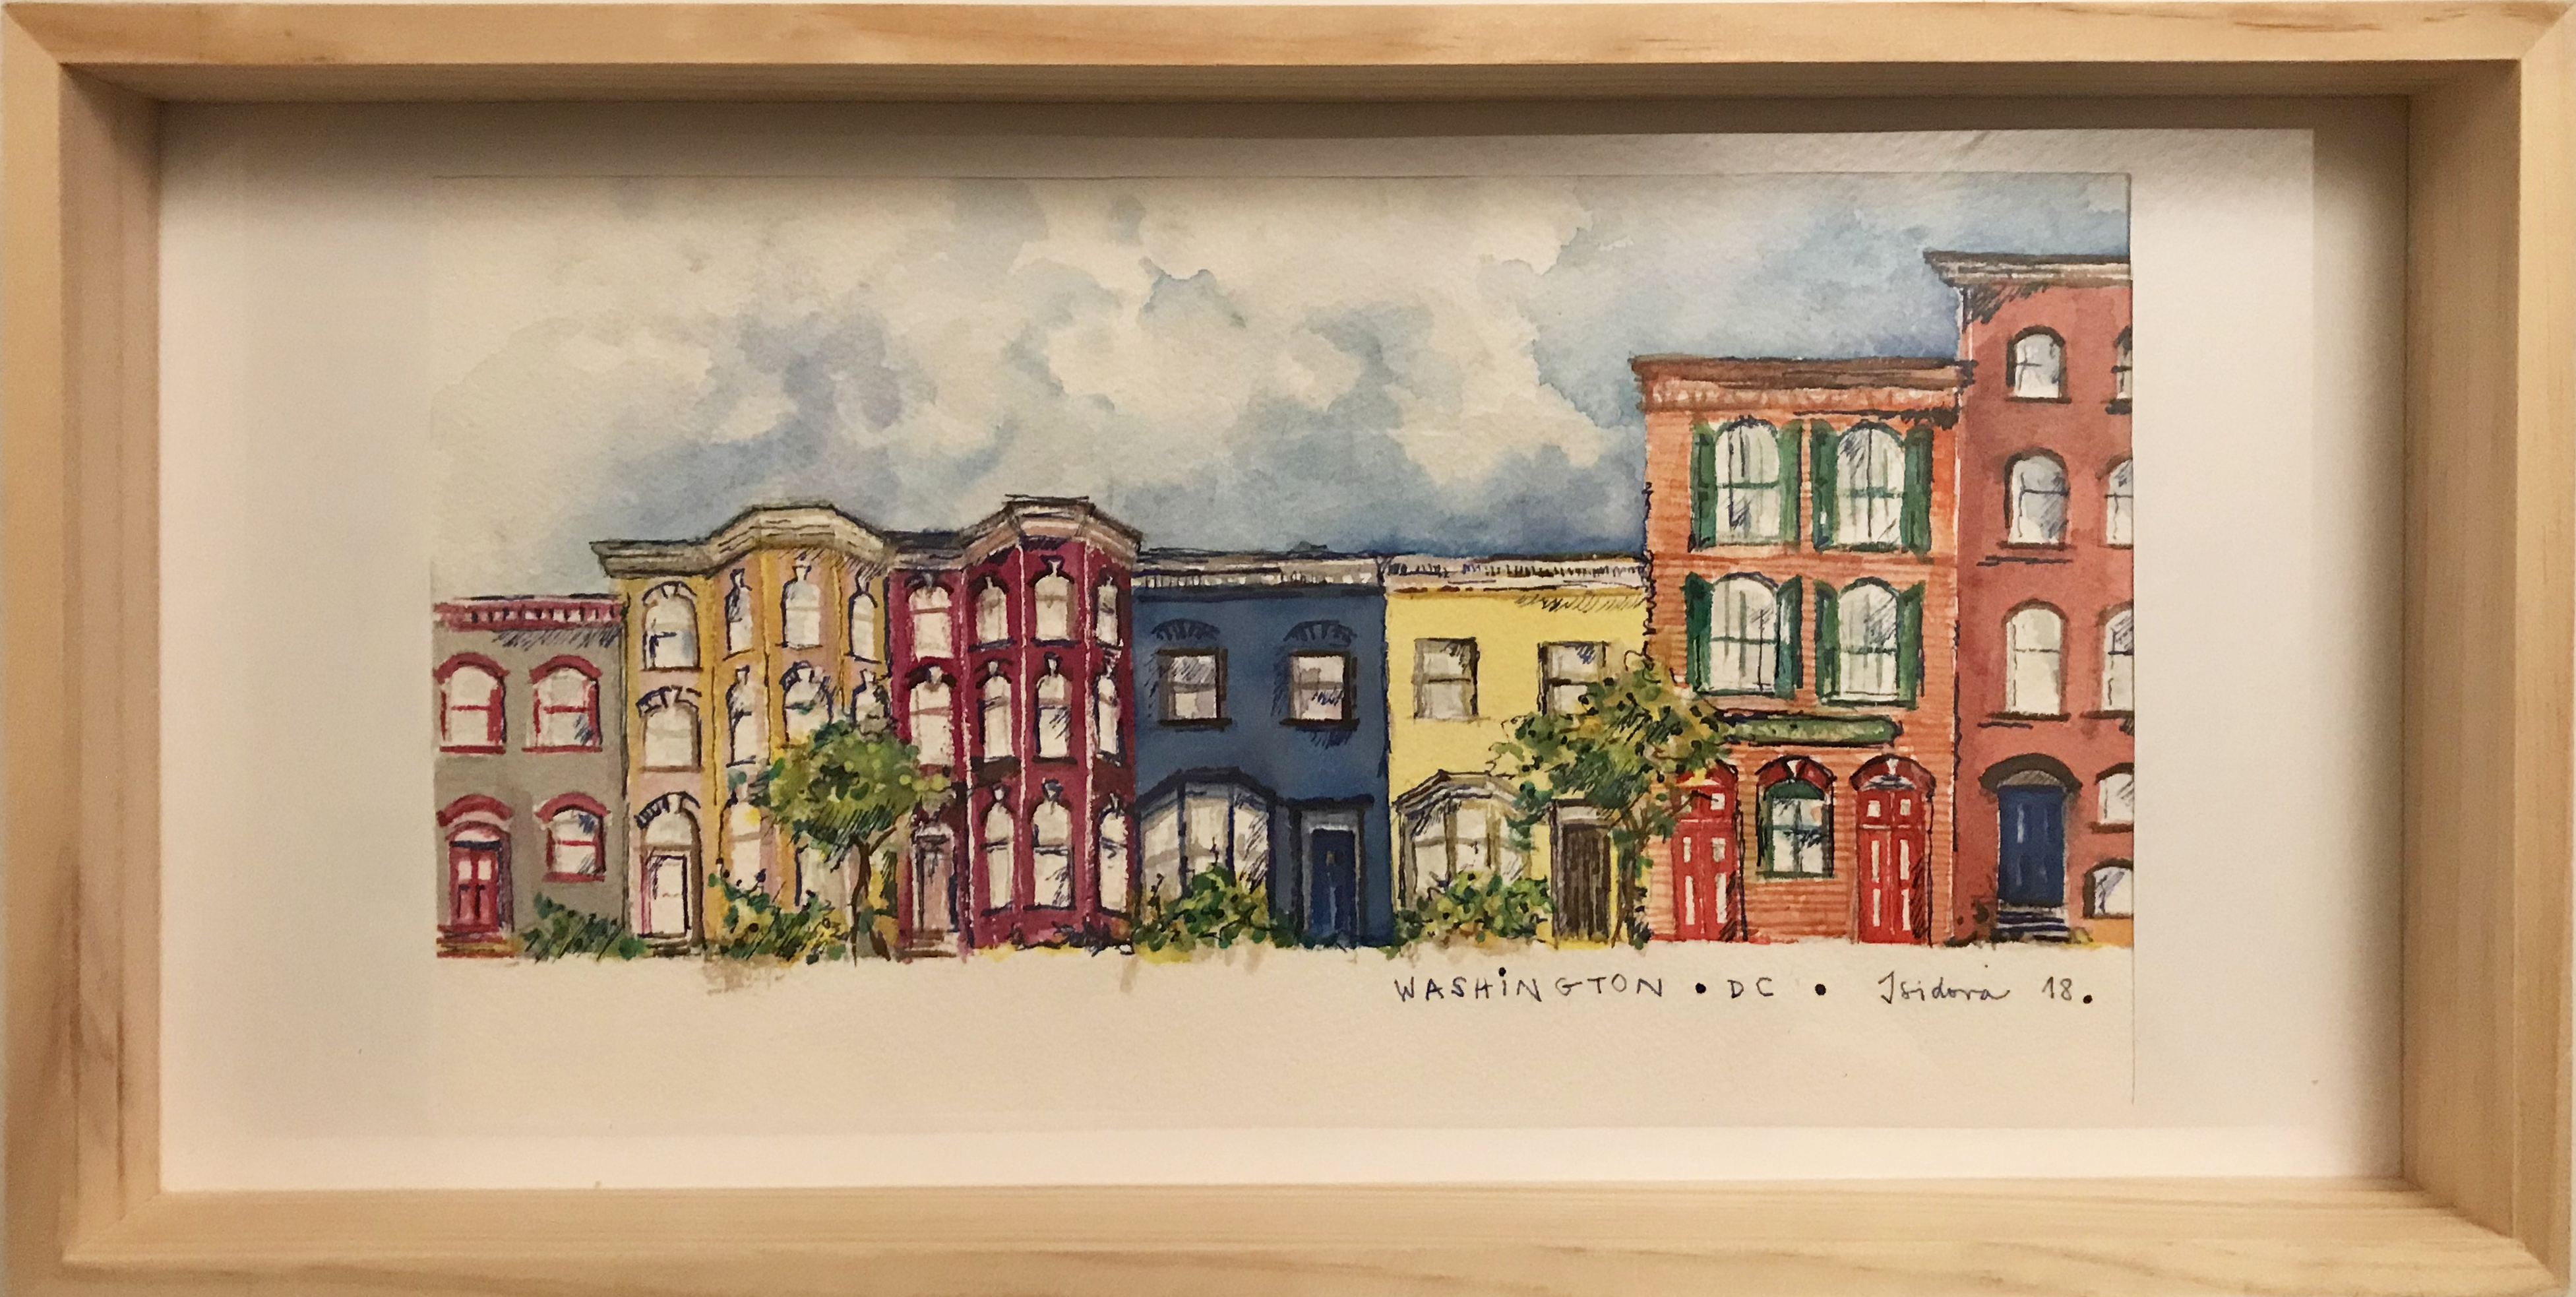 WASHiNGTON • DC • Isidora 18.